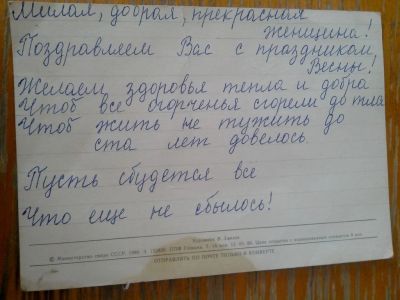 Милая, добрая, прекрасная
женщина!
Поздравляем Вас с праздником
Весны!
Желаем здоровья тепла и добра
Чтоб все огорченья сгорели до тла
Чтоб жить не тужить до
ста лет довелось.
Пусть сбудется все
Что еще не сбылось!
Художник
© Министерство связи СССР,
ОТПРАВЛЯТЬ ПО ПОЧТЕ ТОЛЬКО В КОНВЕРТЕ